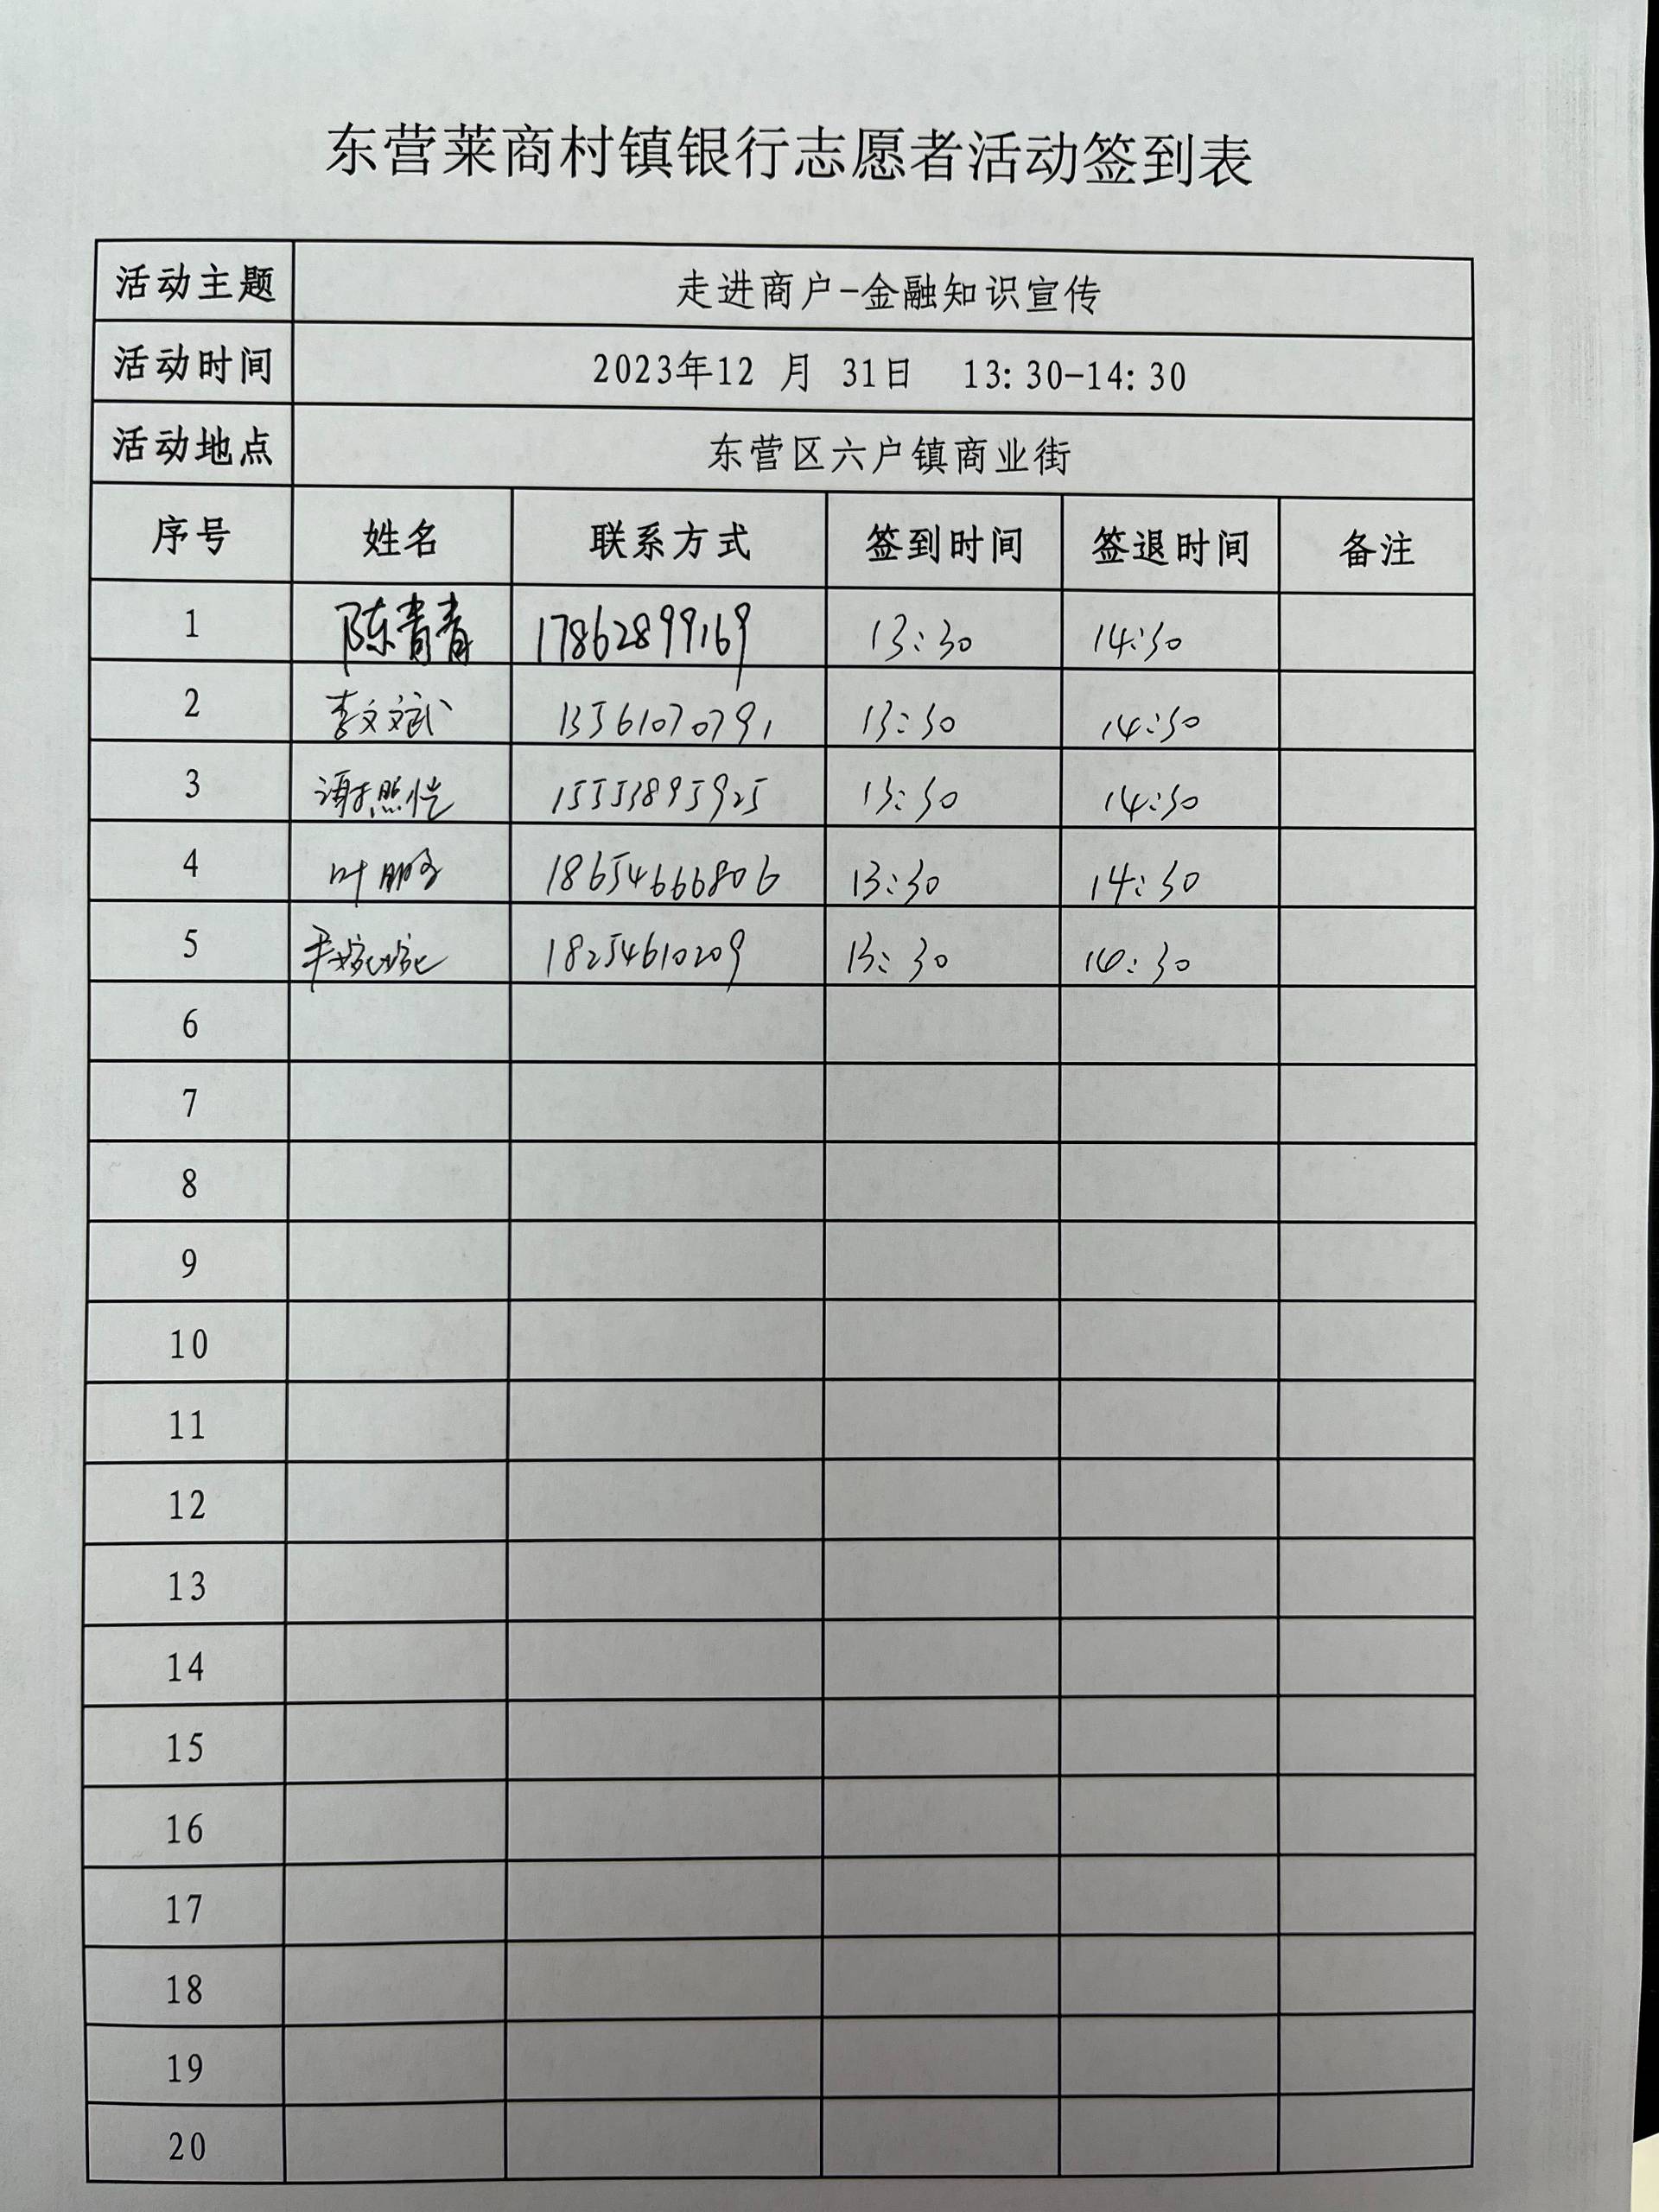 东营莱商村镇银行志愿者活动签到表
活动主题 走进商户-金融知识宣传
活动时间 2023年12 月 31日 13:30-14:30
活动地点 东营区六户镇商业街
序号 姓名 联系方式 签到时间 签退时间 备注
1 陈青青 17862899169 13:30 14:30
2 李文斌 13561070791 13:30 14:30
3 谢照恺 15553895925 13:30 14:30
4 叶鹏 18654666806 13:30 14:30
5 18254610209 13:30 14:30
6
7
8
9
10
11
12
13
14
15
16
17
18
19
20